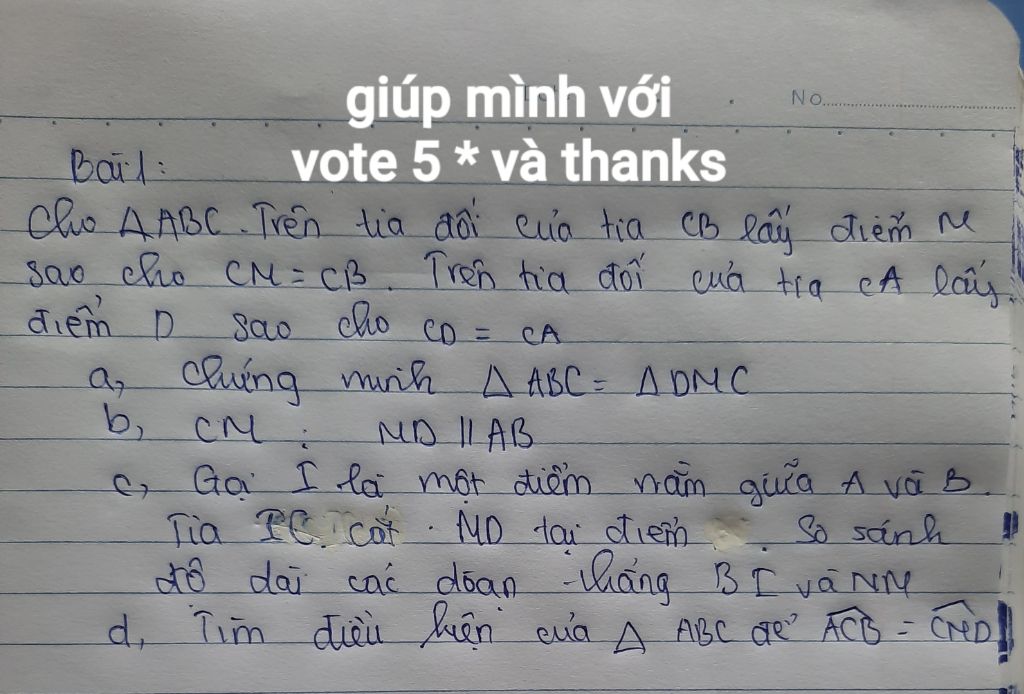 giúp mình với
No.
vote 5 * và thanks
Bài 1:
Cho △ABC. Trên tia đối của tia CB lấy điểm M
sao cho CM = CB. Trên tia đối của tia CA lấy
điểm D sao cho CD = CA
a, Chứng minh △ABC = △DMC
b, CM : MD // AB
c, Gọi I là một điểm nằm giữa A và B.
Tia IC cắt MD tại điểm . So sánh
độ dài các đoạn thẳng BI và NM
d, Tìm điều kiện của △ ABC để ACB = CMD